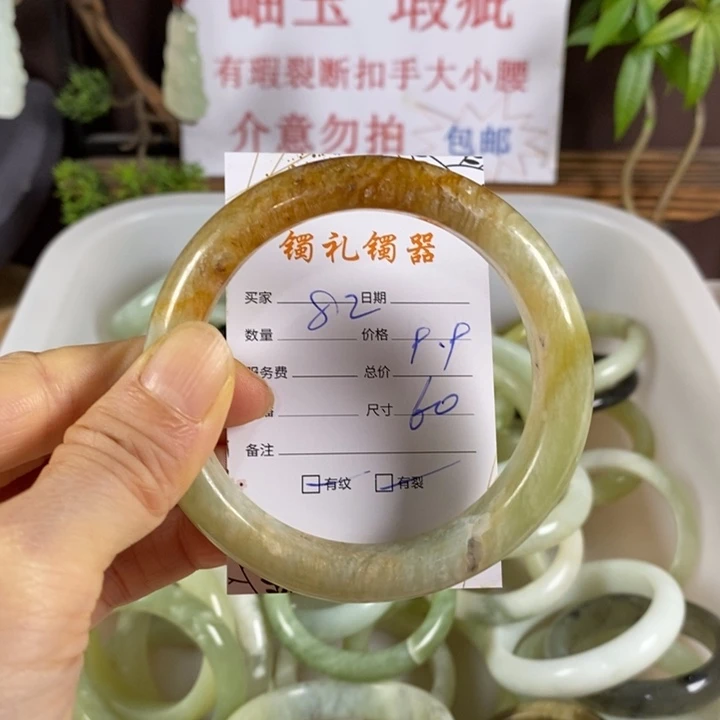 岫玉 瑕疵
有瑕裂断扣手大小腰
介意勿拍 包邮
镯礼镯器
买家 82 日期
数量 价格 9.9
服务费 总价
尺寸 60
备注
有纹 有裂